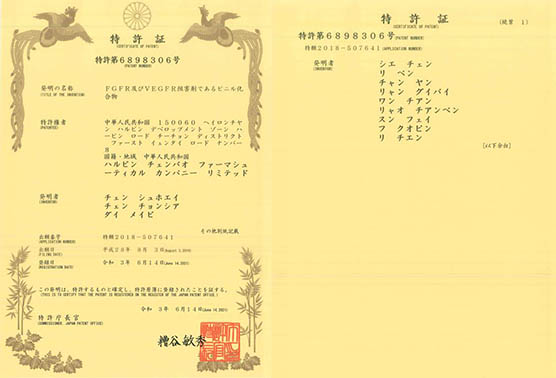 特許証
(CERTIFICATE OF PATENT)
特許第6898306号
(PATENT NUMBER)
発明の名称
(TITLE OF THE INVENTION)
FGFR及びVEGFR阻害剤であるビニル化
合物
特許権者
(PATENTEE)
中華人民共和国 150060 ヘイロンチャ
ン ハルピン デベロップメント ゾーン ハ
ーピン ロード チーチョン ディストリクト
ファースト イェンダイ ロード ナンバー
8
国籍・地域 中華人民共和国
ハルピン チェンバオ ファーマシュ
ーティカル カンパニー リミテッド
発明者
(INVENTOR)
チェン シュホエイ
チェン チョンシア
ダイ メイビ
その他別紙記載
出願番号
(APPLICATION NUMBER)
特願2018-507641
出願日
(FILING DATE)
平成28年 8月 3日(August 3,2016)
登録日
(REGISTRATION DATE)
令和 3年 6月14日(June 14,2021)
この発明は、特許するものと確定し、特許原簿に登録されたことを証する。
(THIS IS TO CERTIFY THAT THE PATENT IS REGISTERED ON THE REGISTER OF THE JAPAN PATENT OFFICE.)
令和 3年 6月14日(June 14,2021)
特許庁長官
(COMMISSIONER, JAPAN PATENT OFFICE)
糟谷敏秀
特許証
(CERTIFICATE OF PATENT)
(続葉 1)
特許第6898306号(PATENT NUMBER)
特願2018-507641(APPLICATION NUMBER)
発明者
(INVENTOR)
シエ チェン
リ ペン
チャン ヤン
リャン グイバイ
ワン チアン
リャオ チアンペン
スン フェイ
フ クオピン
リ チエン
[以下余白]